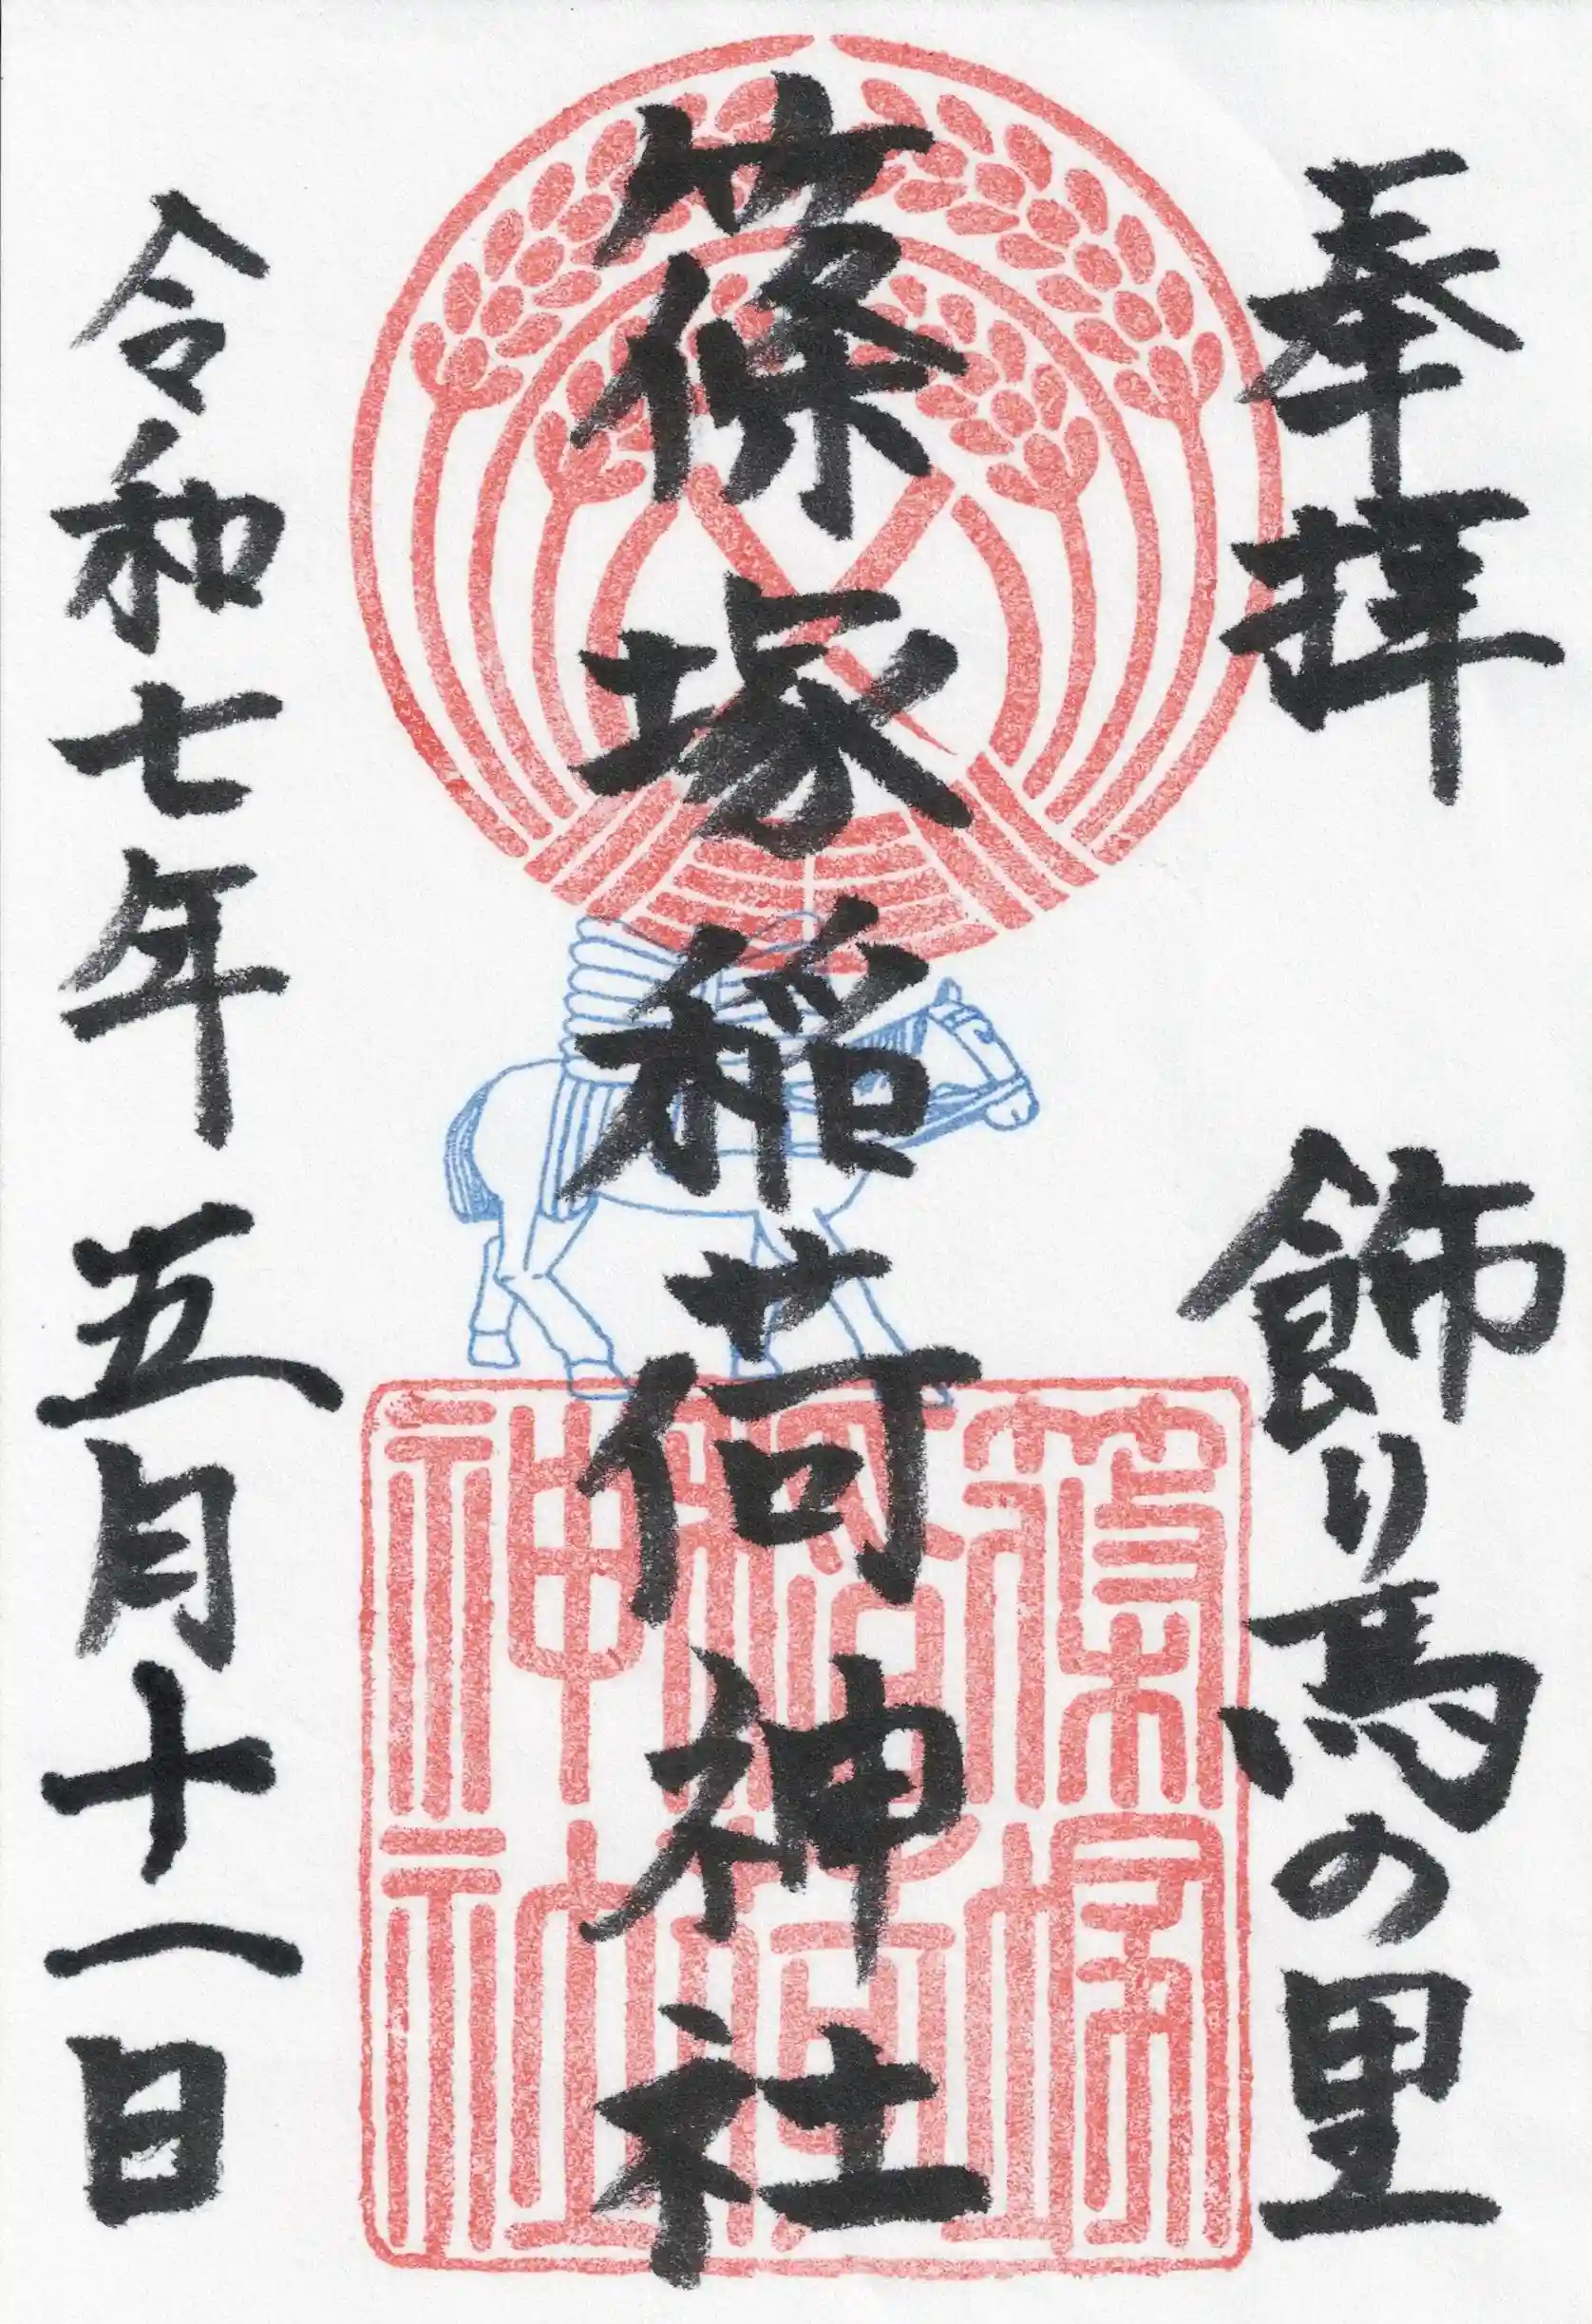 奉拝 飾り馬の里
篠塚稲荷神社
令和七年 五月十一日
篠塚
稲荷
神社